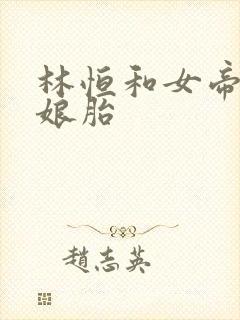 林恒和女帝
娘胎
赵志英